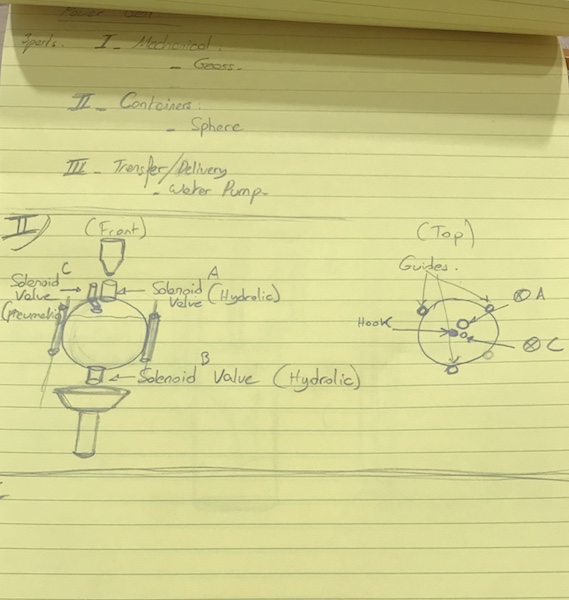 Power
3parts. I - Mechanical.
- Gears.
II - Containers.
- Sphere
III - Transfer/Delivery
- Water Pump.
II)
(Front)
(Top)
Guides.
C
Solenoid
Valve
(Pneumatic)
A
Solenoid
Valve (Hydrolic)
⊗ A
Hook
⊗ C
B
Solenoid Valve (Hydrolic)